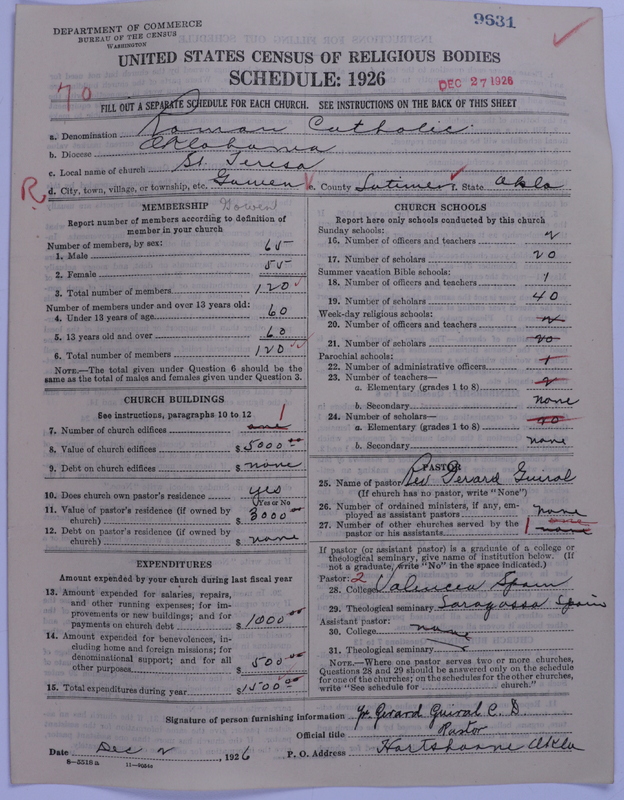 DEPARTMENT OF COMMERCE
BUREAU OF THE CENSUS
WASHINGTON
9631
UNITED STATES CENSUS OF RELIGIOUS BODIES
SCHEDULE: 1926
DEC 27 1926
70
FILL OUT A SEPARATE SCHEDULE FOR EACH CHURCH. SEE INSTRUCTIONS ON THE BACK OF THIS SHEET
a. Denomination Roman Catholic
b. Diocese Oklahoma
c. Local name of church St. Teresa
R
d. City, town, village, or township, etc. Gowen e. County Latimer f. State Okla
MEMBERSHIP Gowen
Report number of members according to definition of
member in your church
Number of members, by sex:
1. Male 65
2. Female 55
3. Total number of members 120
Number of members under and over 13 years old:
4. Under 13 years of age 60
5. 13 years old and over 60
6. Total number of members 120
NOTE.—The total given under Question 6 should be
same as the total of males and females given under Question 3.
CHURCH BUILDINGS
See instructions, paragraphs 10 to 12
1
7. Number of church edifices one
8. Value of church edifices $ 5000 00
9. Debt on church edifices $ none
10. Does church own pastor's residence yes
(Yes or No)
11. Value of pastor's residence (if owned by
church) $ 3000 00
12. Debt on pastor's residence (if owned by
church) $ none
EXPENDITURES
Amount expended by your church during last fiscal year
13. Amount expended for salaries, repairs,
and other running expenses; for im-
provements or new buildings; and for
payments on church debt $ 1000 00
14. Amount expended for benevolences, in-
cluding home and foreign missions; for
denominational support; and for all
other purposes $ 500 00
15. Total expenditures during year $ 1500 00
CHURCH SCHOOLS
Report here only schools conducted by this church
Sunday schools:
16. Number of officers and teachers 2
17. Number of scholars 20
Summer vacation Bible schools:
18. Number of officers and teachers 1
19. Number of scholars 40
Week-day religious schools:
20. Number of officers and teachers 2
21. Number of scholars 20
Parochial schools:
22. Number of administrative officers 1
23. Number of teachers—
a. Elementary (grades 1 to 8) 2
b. Secondary none
24. Number of scholars—
a. Elementary (grades 1 to 8)
b. Secondary none
PASTOR
25. Name of pastor Rev Gerard Guiral
(If church has no pastor, write "None")
26. Number of ordained ministers, if any, em-
ployed as assistant pastors none
27. Number of other churches served by the
pastor or his assistants 1 none
If pastor (or assistant pastor) is a graduate of a college or
theological seminary, give name of institution below. (If
not a graduate, write "No" in the space indicated.)
Pastor: 2
28. College Valencia Spain
29. Theological seminary Saragossa Spain
Assistant pastor:
30. College none
31. Theological seminary
NOTE.—Where one pastor serves two or more churches,
Questions 28 and 29 should be answered only on the schedule
for one of the churches; on the schedules for the other churches,
write "See schedule for church."
Signature of person furnishing information Fr Gerard Guiral C. D.
Official title Pastor
Date Dec 2, 1926 P. O. Address Hartshorne Okla
8—5516 a